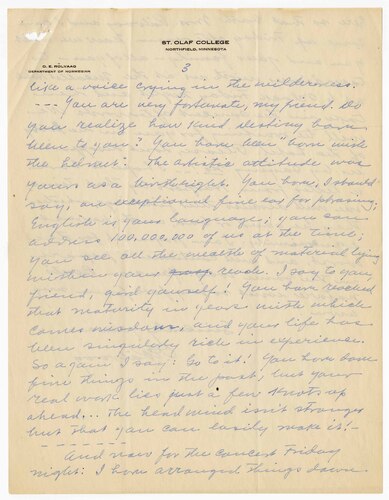 ST. OLAF COLLEGE
NORTHFIELD, MINNESOTA
O. E. RÖLVAAG
DEPARTMENT OF NORWEGIAN
3
like a voice crying in the wilderness.
--- You are very fortunate, my friend. Do
you realize how kind destiny have
been to you? You have been "born with
the helmet". The artistic attitude was
yours as a birthright. You have, I should
say, an exceptional fine ear for phrasing;
English is your language; you can
address 100,000,000 of us at the time;
you see all the wealth of material lying
within your reach. I say to you,
friend, gird yourself! You have reached
that maturity in years with which
comes wisdom, and your life has
been singularly rich in experience.
So again I say: Go to it! You have done
fine things in the past, but your
real work lies just a few knots up
ahead... The head wind isn't stronger
but that you can easily make it!-
- - - - - - -
And now for the concert Friday
night: I have arranged things down